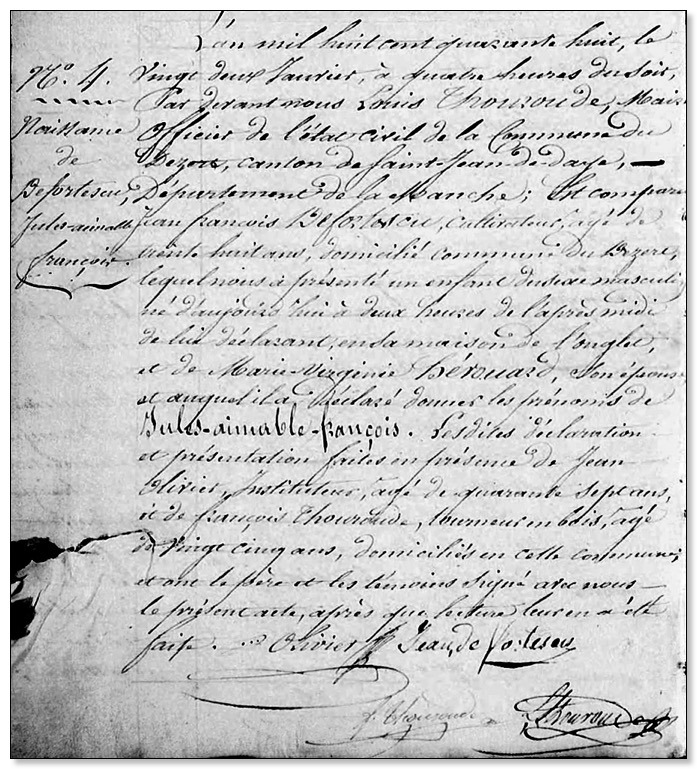 L'an mil huit cent quarante huit, le
N.° 4.
vingt deux Janvier, à quatre heures du soir,
Par devant nous Louis Thouroude, Maire
Naissance
Officier de l'état civil de la Commune du
de
Dezert, canton de Saint-Jean-de-daye, —
Defortescu,
Département de la Manche; Est comparu
Jules-aimable
Jean françois Defortescu, Cultivateur, agé de
françois.
trente huit ans, domicilié commune du Dezert,
lequel nous a présenté un enfant du sexe masculin
né d'aujourd'hui à deux heures de l'après midi
de lui déclarant, en sa maison de l'onglet,
et de Marie-Virginie Hérouard, son épouse
et auquel il a déclaré donner les prénoms de
Jules-aimable-françois. Lesdites déclaration
et présentation faites en présence de Jean
Olivier, instituteur, agé de quarante sept ans,
et de françois Thouroude, tourneur en bois, agé
de vingt cinq ans, domiciliés en cette commune;
et ont le père et les témoins signé avec nous
le présent acte, après que lecture leur en a été
faite. Olivier Jean de fortescu
f. Thouroude Thouroude